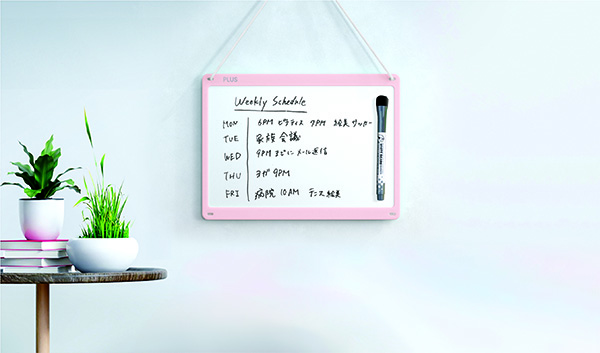 PLUS
Weekly Schedule
MON 6PM ピラティス 7PM 絵美サッカー
TUE 家族会議
WED 9PM メール返信
THU ヨガ 9PM
FRI 病院 10AM テニス 絵美